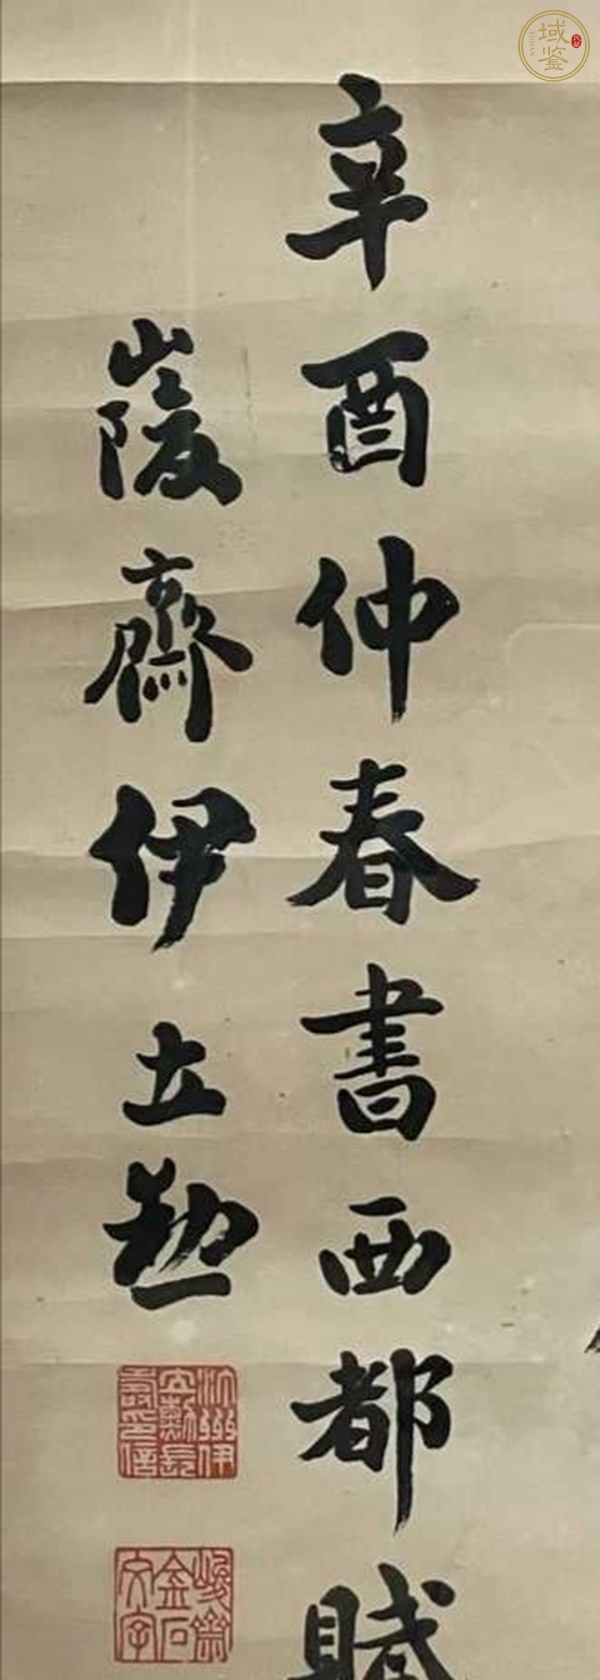 辛酉仲春書西都賦
峻齋伊立勳
沙州伊立勳長壽印信
峻齋金石文字
域鉴